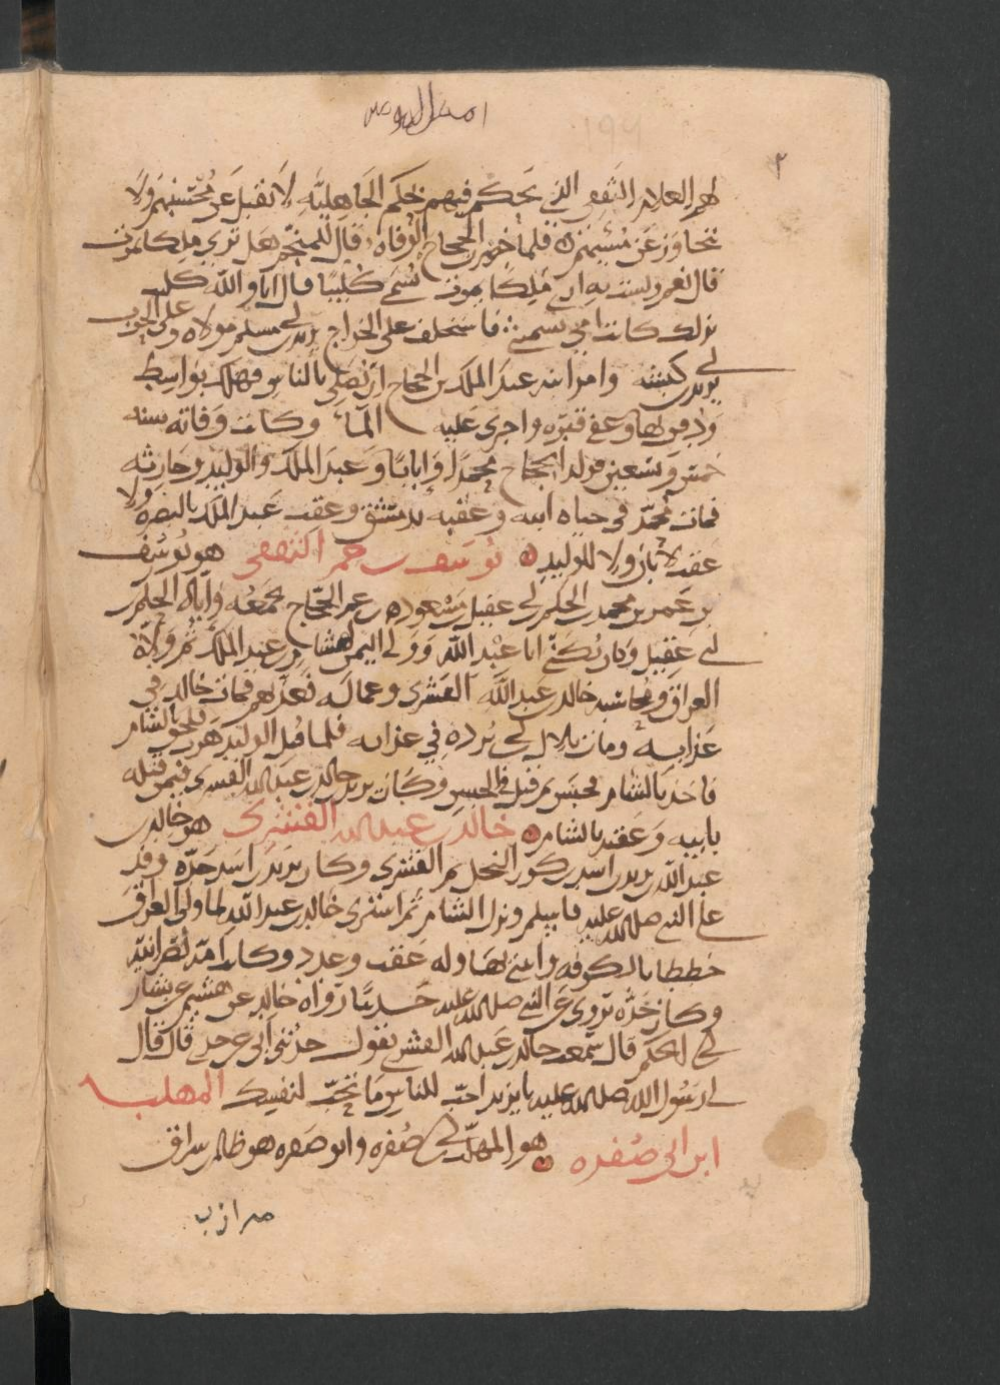 ٢
لهم الغلام الثقفي الذي يحكم فيهم بحكم الجاهلية لا تقبل عن محسنهم ولا
تتجاوز عن مسيئهم فلما حضرت الحجاج الوفاة قال للمنجم هل ترى ملكا يموت
قال نعم ولست به ارى ملكا يموت تسمى كليبا قال انا والله كليب
بذلك كانت امي تسميني فاستخلف على الخراج يزيد بن ابي مسلم مولاه وعلى الحرب
يزيد بن ابي كبشة وامر ابنه عبد الملك بن الحجاج ان يصلي بالناس فهلك بواسط
ودفن بها وعفي قبره واجرى عليه الماء وكانت وفاته سنة
خمس وتسعين فولد الحجاج محمدا وابانا وعبد الملك والوليد وجارية
فمات محمد في حياة ابيه وعقبه بدمشق وعقب عبد الملك بالبصرة ولا
عقب لابان ولا للوليد يوسف بن عمر الثقفي هو يوسف
بن عمر بن محمد بن الحكم بن ابي عقيل بن مسعود بن عم الحجاج يجمعه واياه الحكم بن
ابي عقيل وكان يكنى ابا عبد الله وولي اليمن لهشام بن عبد الملك ثم ولاه
العراق ومحاسبة خالد بن عبد الله القسري وعماله فعذبهم فمات خالد في
عذابه ومات بلال بن ابي بردة في عذابه فلما قتل الوليد هرب فلحق بالشام
فاخذ بالشام فحبس ثم قتل في الحبس وكان يزيد بن خالد بن عبد الله القسري فيمن قتله
بابيه وعقبه بالشام خالد بن عبد الله القسري هو خالد بن
عبد الله بن يزيد بن اسد بن كرز البجلي ثم القسري وكان يزيد بن اسد جده وفد
على النبي صلى الله عليه فاسلم ونزل الشام ثم اشترى خالد بن عبد الله لما ولي العراق
خططا بالكوفة وابتنى بها وله عقب وعدد وكانت امه نصرانية
وكان جده يروي عن النبي صلى الله عليه حديثا رواه خالد عن هشيم عن سيار
ابي الحكم قال سمعت خالد بن عبد الله القسري يقول حدثني ابي عن جدي قال قال
لي رسول الله صلى الله عليه يا يزيد احب للناس ما تحب لنفسك المهلب
ابن ابي صفرة هو المهلب بن ابي صفرة وابو صفرة هو ظالم بن سراق